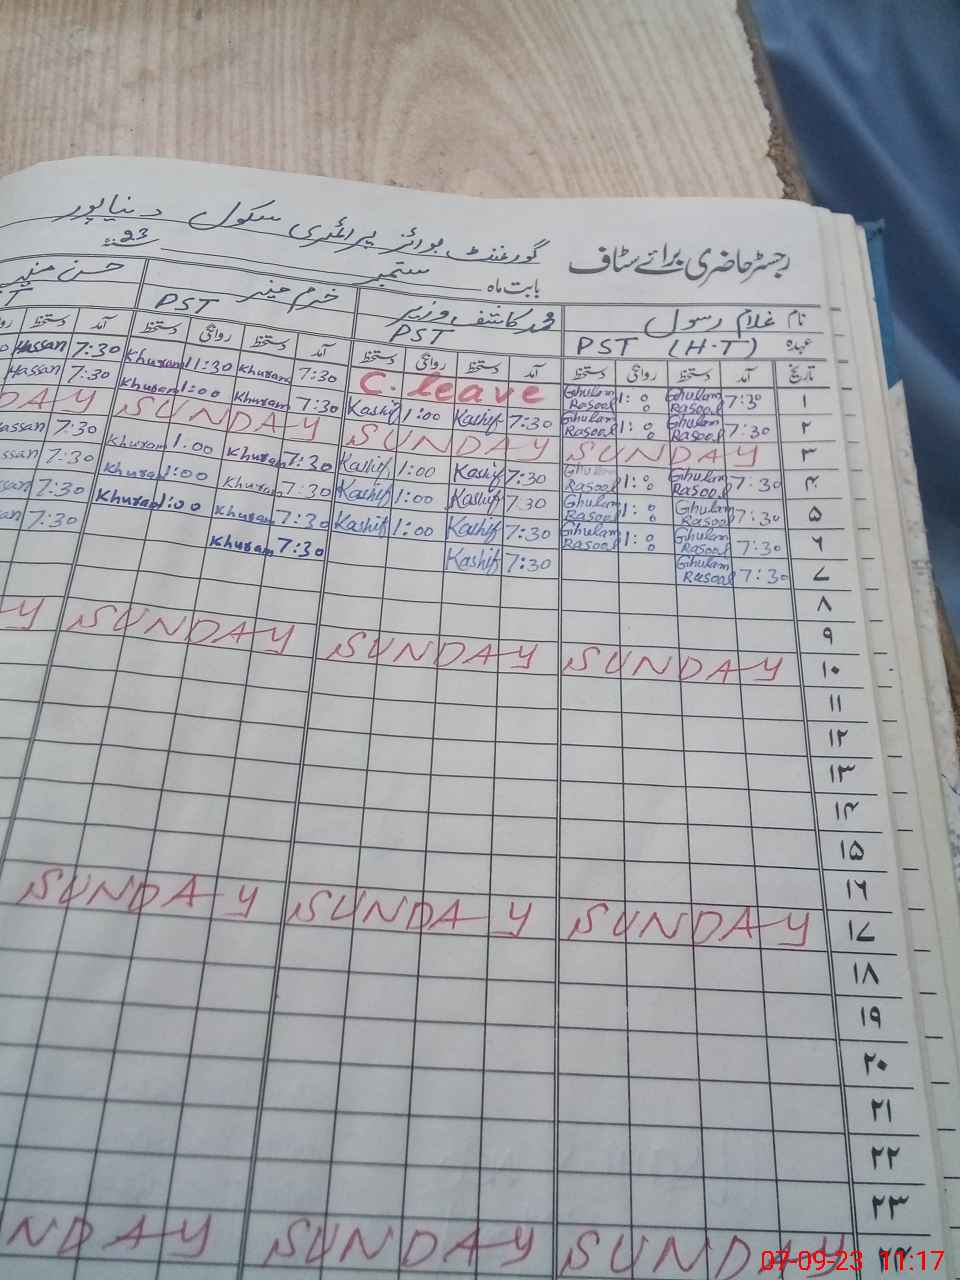 گورنمنٹ بوائز پرائمری سکول دنیاپور
رجسٹر حاضری برائے سٹاف
بابت ماہ ستمبر 23
نام غلام رسول محمد کاشف وزیر خرم منیر حسن منیر
عہدہ PST (H.T) PST PST ST
تاریخ آمد دستخط روانگی دستخط آمد دستخط روانگی دستخط آمد دستخط روانگی دستخط آمد دستخط
۱ 7:30 Ghulam Rasool 1:00 Ghulam Rasool C. leave 7:30 Khuram 11:30 Khuram 7:30 Hassan
۲ 7:30 Ghulam Rasool 1:00 Ghulam Rasool 7:30 Kashif 1:00 Kashif 7:30 Khuram 1:00 Khuram 7:30 Hassan
۳ SUNDAY SUNDAY SUNDAY DAY
۴ 7:30 Ghulam Rasool 1:00 Ghulam Rasool 7:30 Kashif 1:00 Kashif 7:30 Khuram 1:00 Khuram 7:30 assan
۵ 7:30 Ghulam Rasool 1:00 Ghulam Rasool 7:30 Kashif 1:00 Kashif 7:30 Khuram 1:00 Khuram 7:30 ssan
۶ 7:30 Ghulam Rasool 1:00 Ghulam Rasool 7:30 Kashif 1:00 Kashif 7:30 Khuram 1:00 Khuram 7:30 ssan
۷ 7:30 Ghulam Rasool 7:30 Kashif 7:30 Khuram 7:30 an
۸
۹
۱۰ SUNDAY SUNDAY SUNDAY Y
۱۱
۱۲
۱۳
۱۴
۱۵
۱۶
۱۷ SUNDAY SUNDAY SUNDAY
۱۸
۱۹
۲۰
۲۱
۲۲
۲۳
۲۴ SUNDAY SUNDAY NDAY
07-09-23 11:17